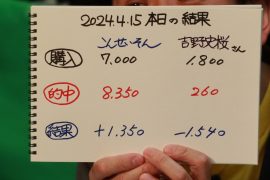 2024.4.15 本日の結果
とんせいそん 吉野史桜さん
購入 7.000 1.800
的中 8.350 260
結果 +1.350 -1.540